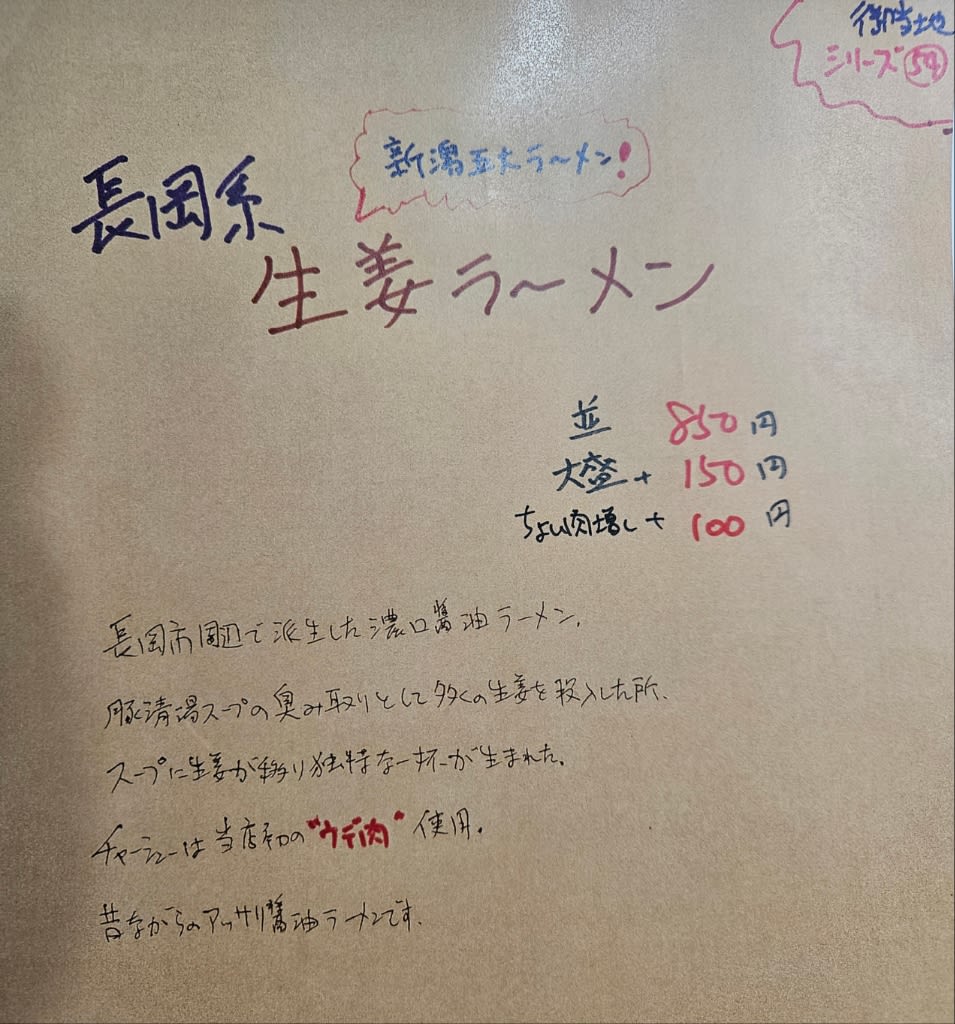 御当地
シリーズ54
新潟五大ラーメン!
長岡系
生姜ラ〜メン
並 850円
大盛+150円
ちょい肉増し+100円
長岡市周辺で派生した濃口醤油ラーメン。
豚清湯スープの臭み取りとして多くの生姜を投入した所、
スープに生姜が移り独特な一杯が生まれた。
チャーシューは当店初の"ウデ肉"使用。
昔ながらのアッサリ醤油ラーメンです。